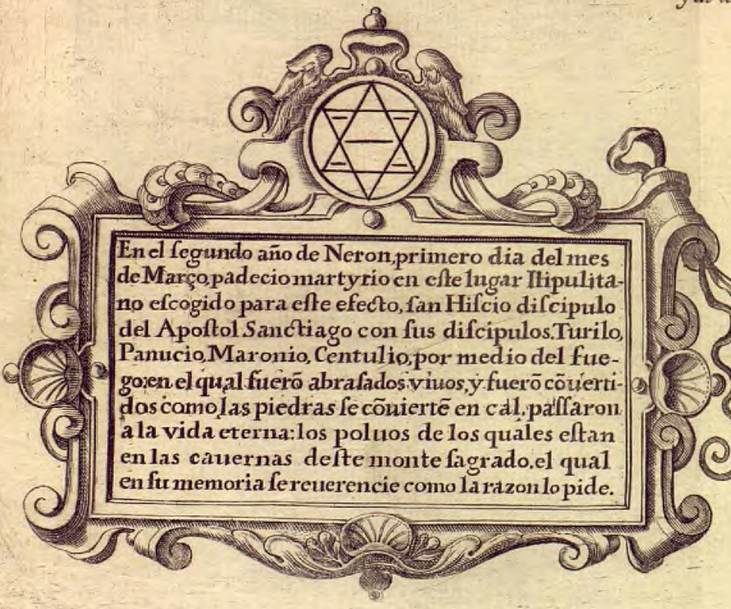 En el ſegundo año de Neron, primero dia del mes
de Março, padecio martyrio en eſte lugar Ilipulita-
no eſcogido para eſte efecto, ſan Hiſcio diſcipulo
del Apoſtol Sanctiago con ſus diſcipulos, Turilo,
Panucio, Maronio, Centulio, por medio del fue-
go: en el qual fuerō abraſados viuos, y fuerō cōuerti-
dos como las piedras ſe cōuiertē en cal, paſſaron
a la vida eterna: los poluos de los quales eſtan
en las cauernas deſte monte ſagrado, el qual
en ſu memoria ſe reuerencie como la razon lo pide.